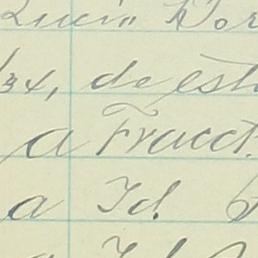 Lucio Dor
/34, de est
a Fracct.
a Id.
a Id.